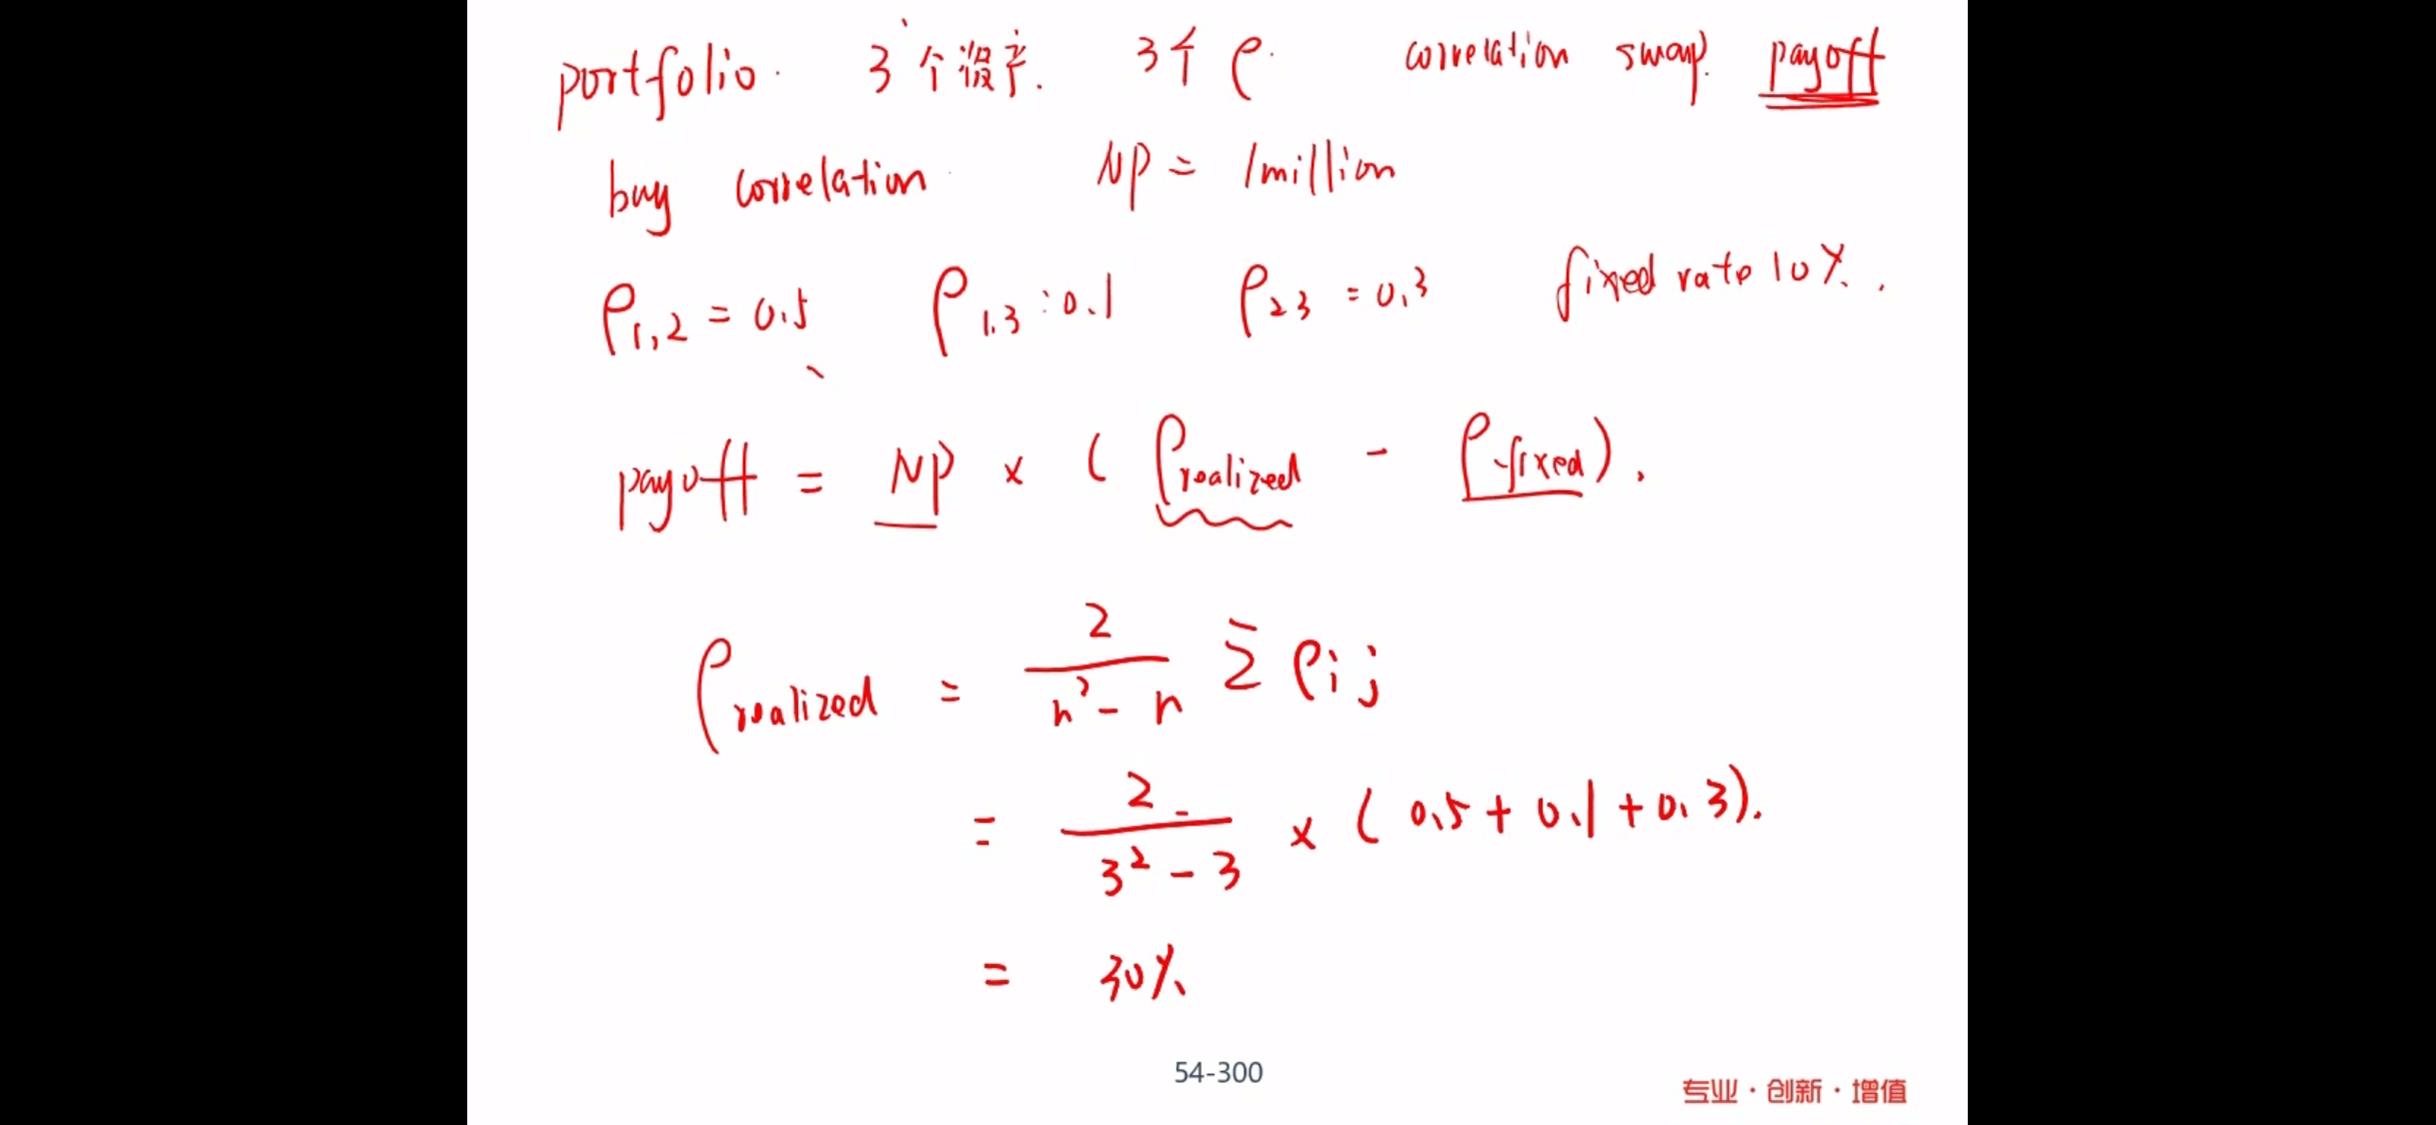 portfolio. 3个资产. 3个 ρ. correlation swap. payoff
buy correlation NP = 1million
ρ1,2 = 0.5 ρ1.3 : 0.1 ρ23 = 0.3 fixed rate 10%.
payoff = NP × ( ρrealized - ρfixed ).
ρrealized = 2/(n²-n) Σ ρij
= 2/(3²-3) × ( 0.5 + 0.1 + 0.3 ).
= 30%
54-300
专业·创新·增值